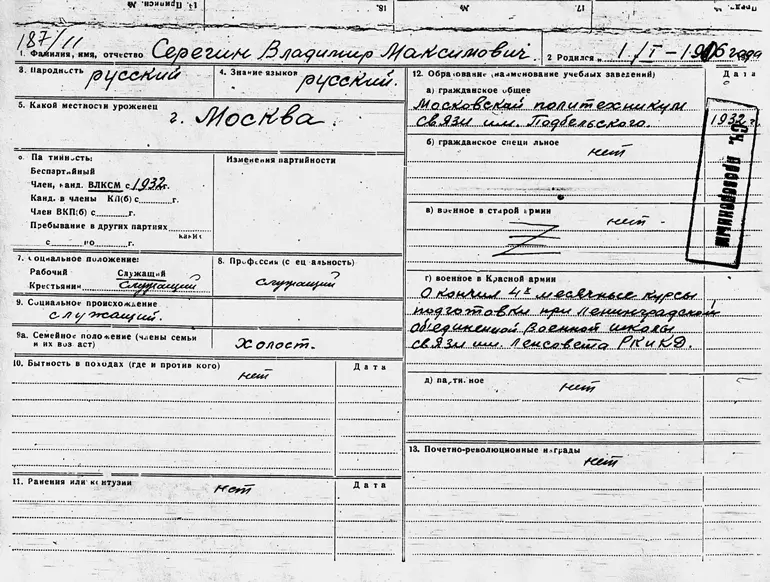 13. Приписн №
16.
№
17.
187/11
1. Фамилия, имя, отчество Серегин Владимир Максимович.
2 Родился „ 1 / I – 1906 года
3. Народность русский
4. Знание языков русский.
5. Какой местности уроженец
г. Москва.
6. Партийность:
Беспартийный
Член, канд. ВЛКСМ с 1932 г.
Канд. в члены КП(б) с г.
Член ВКП(б) с г.
Пребывание в других партиях
каких
с по г.
Изменения партийности
7. Социальное положение:
Рабочий Служащий
Крестьянин Служащий
8. Профессия (специальность)
служащий
9. Социальное происхождение
служащий.
9а. Семейное положение (члены семьи
и их возраст)
Холост.
10. Бытность в походах (где и против кого)
Дата
нет
11. Ранения или контузии нет
Дата
12. Образование (наименование учебных заведений)
Дата
а) гражданское общее
Московский политехникум
связи им. Подбельского. 1932 г.
б) гражданское специальное
нет
в) военное в старой армии
нет
г) военное в Красной армии
Окончил 4х месячные курсы
подготовки при Ленинградской
объединенной Военной школы
связи им. Ленсовета РКиКД.
д) партийное
нет
13. Почетно-революционные награды
нет